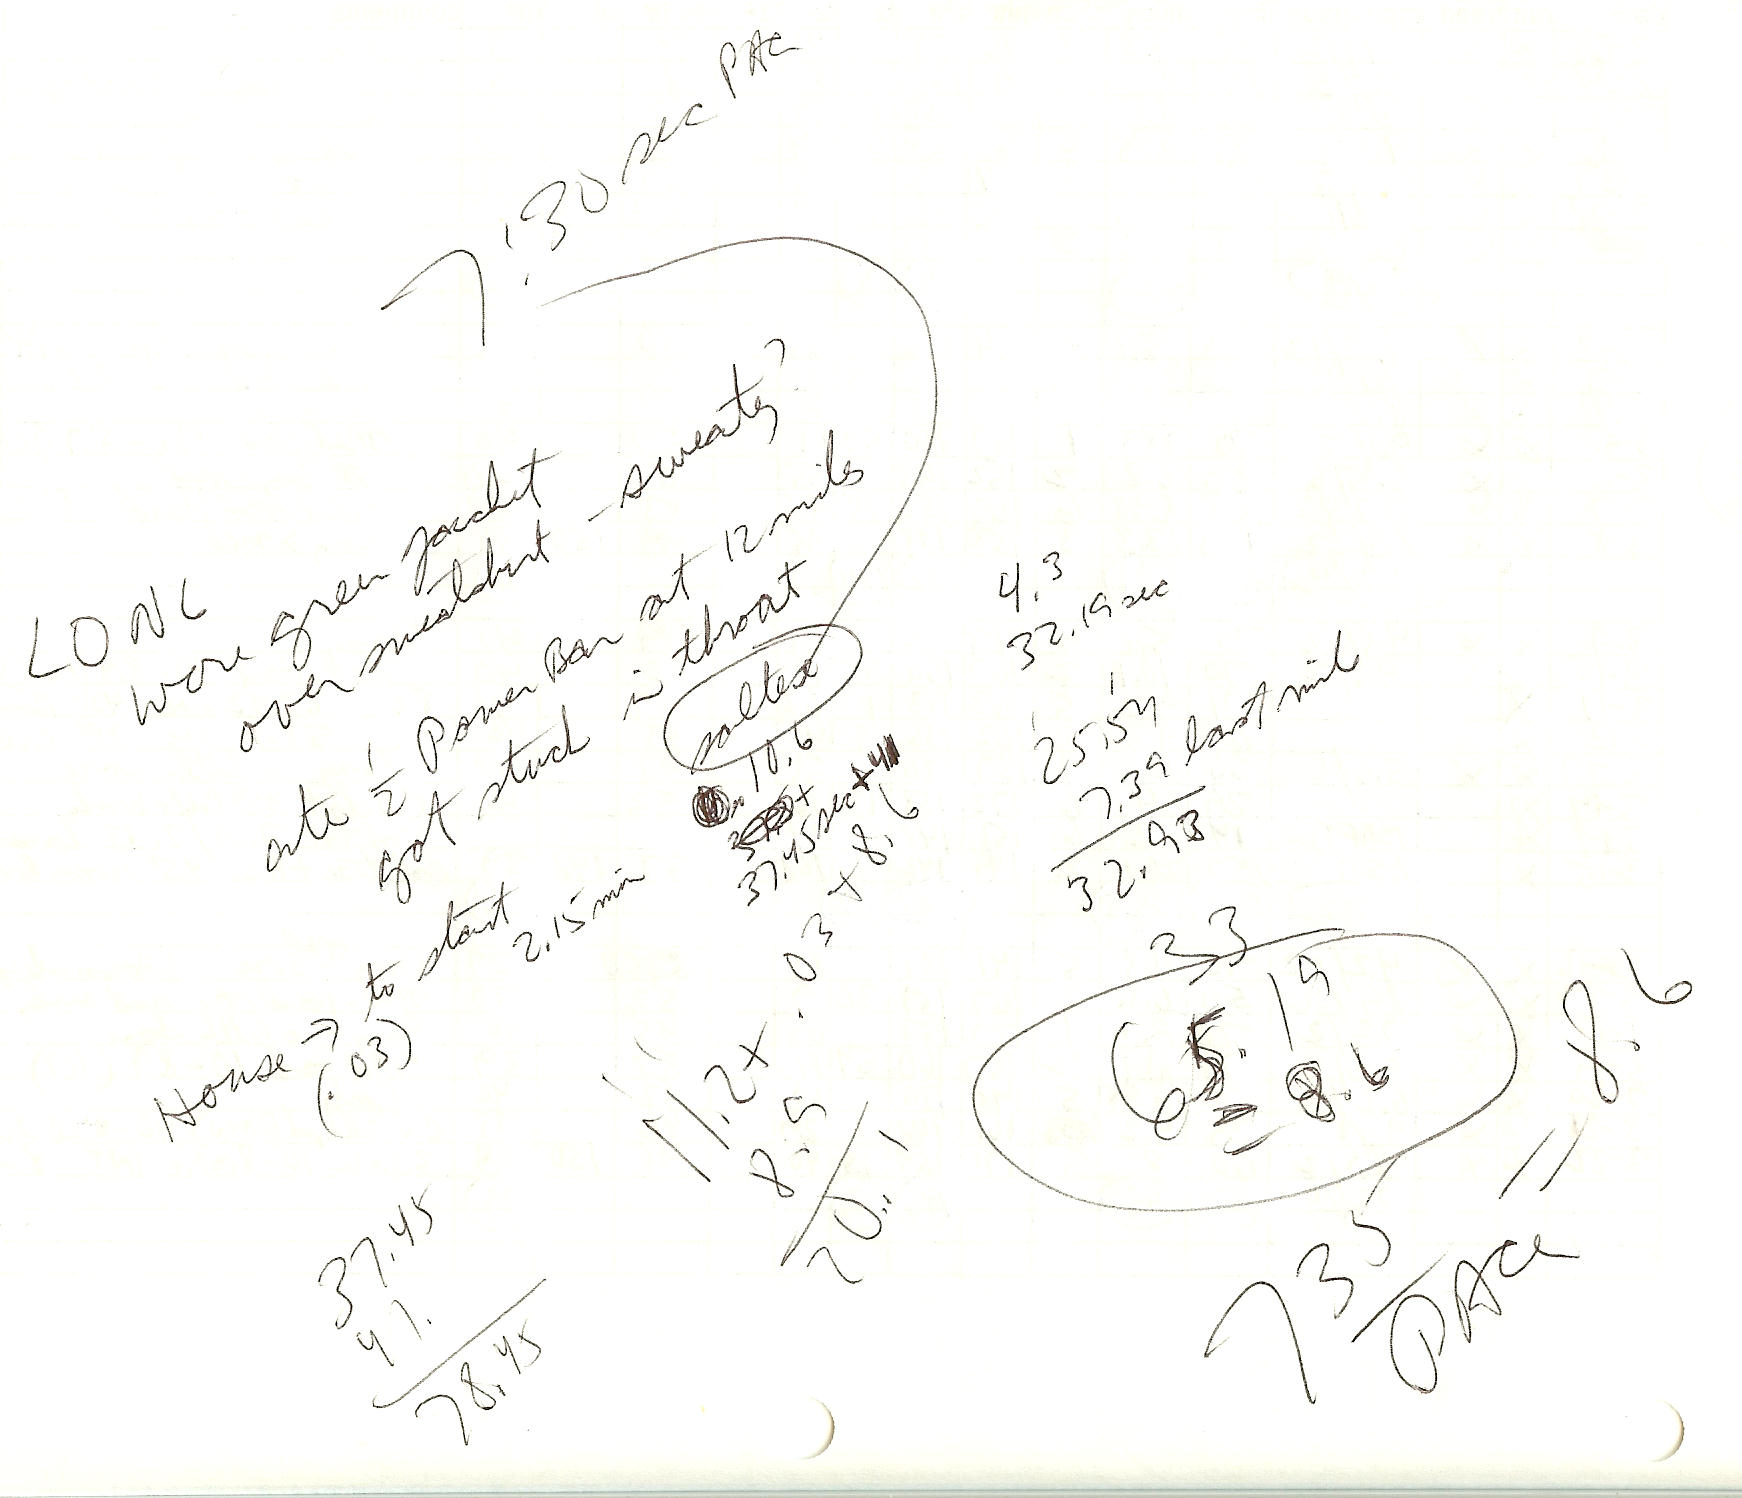 7:30 sec PAC
LONG
wore green jacket
over sweatshirt - sweaty?
ate 1/2 Power Bar at 12 miles
got stuck in throat
salted
10.6
37.45 sec + 41
House → to start
(.03) 2.15 min
11.2 + .03 + 8.6
8.9
20.1
37.45
41.
78.45
4.3
32.19 sec
25.54
7.39 last mile
32.93
33
65.19
= 8.6
735 PACE = 8.6